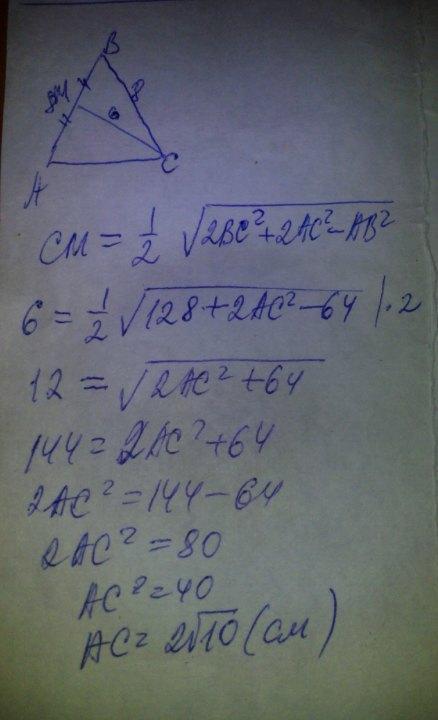 B
8
6
A
C
CM = 1/2 √(2BC² + 2AC² - AB²)
6 = 1/2 √(128 + 2AC² - 64) | · 2
12 = √(2AC² + 64)
144 = 2AC² + 64
2AC² = 144 - 64
2AC² = 80
AC² = 40
AC = 2√10 (см)